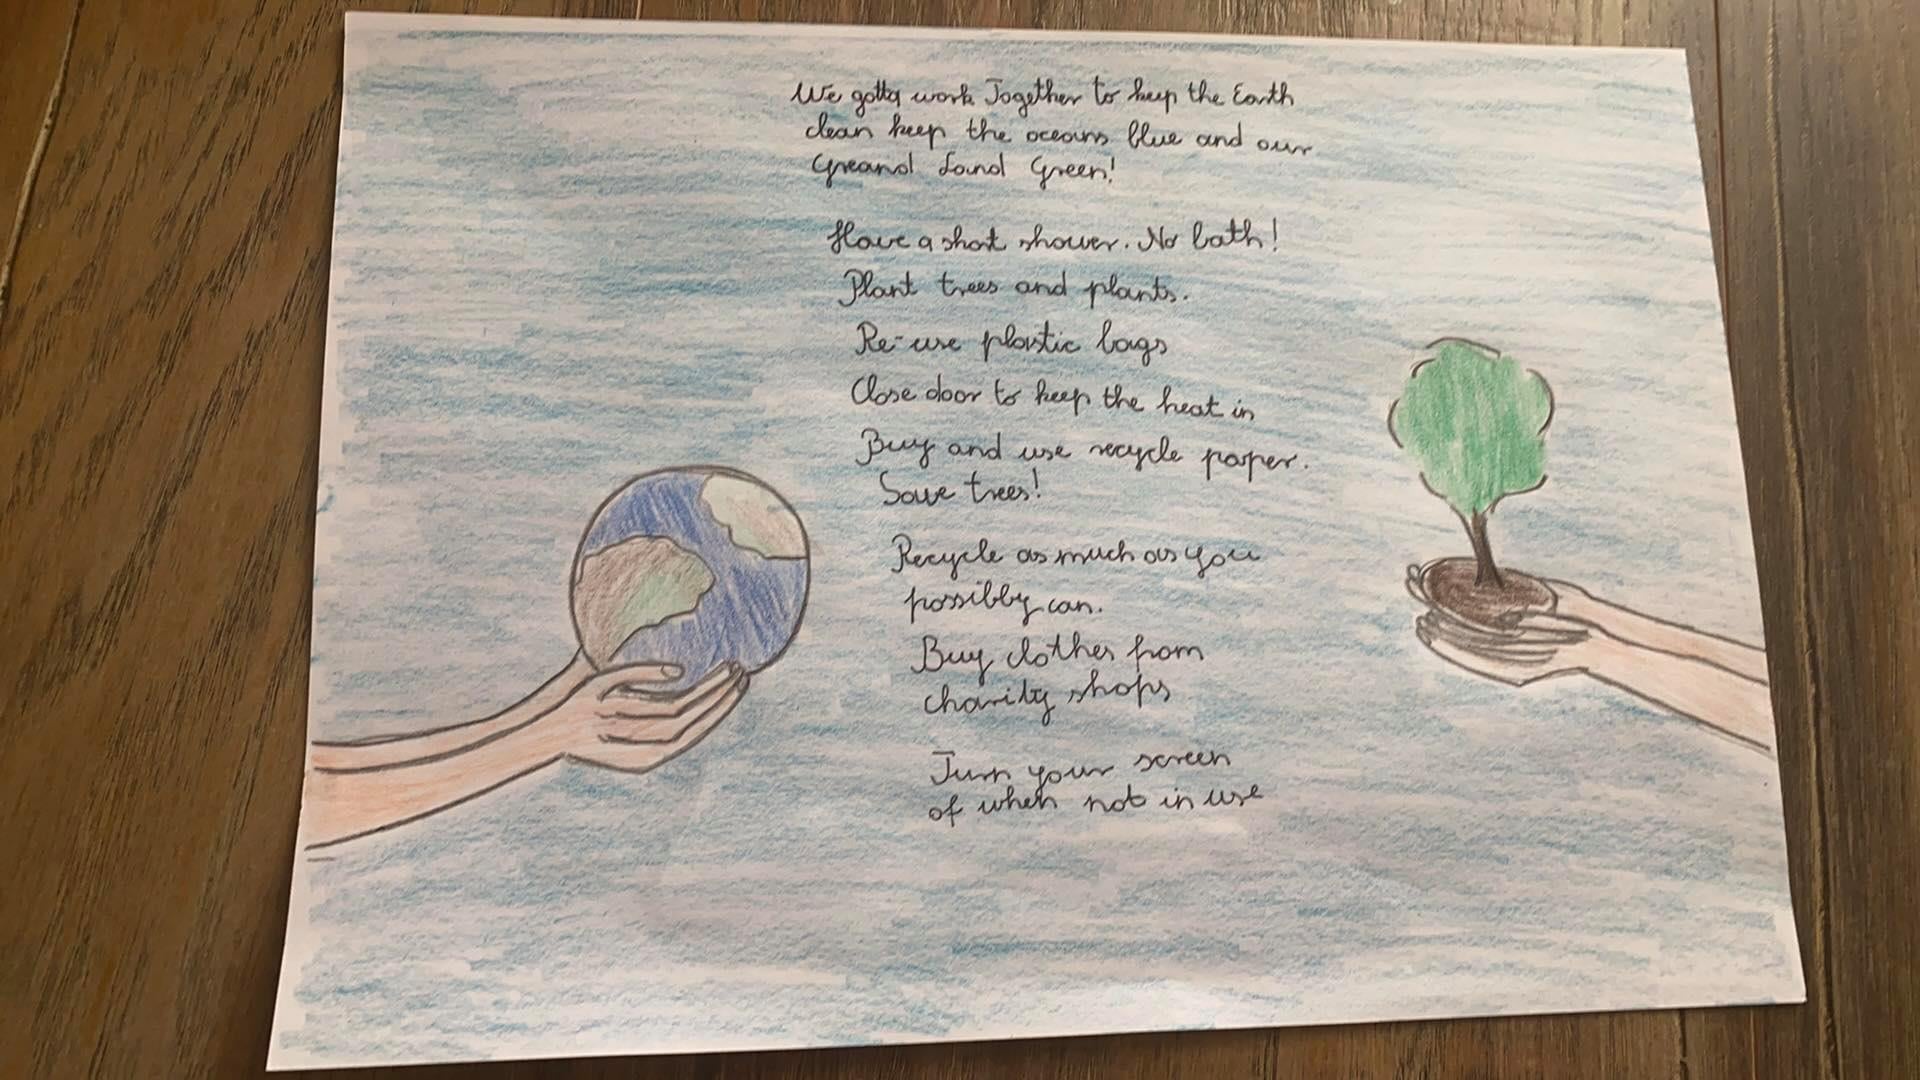 We gotta work Together to keep the Earth
clean keep the oceans blue and our
Greand Land Green!
Have a short shower. No bath!
Plant trees and plants.
Re-use plastic bags
Close door to keep the heat in
Buy and use recycle paper.
Save trees!
Recycle as much as you
possibly can.
Buy clothes from
charity shops
Turn your screen
of when not in use